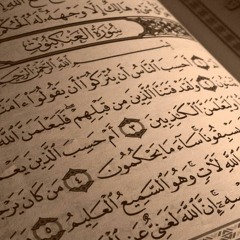 إِلَّا وَجْهَهُ
سُورَةُ الْعَنْكَبُوتِ
اللَّهِ الرَّحْمَٰنِ الرَّحِيمِ
أَحَسِبَ النَّاسُ أَن يُتْرَكُوا أَن يَقُولُوا ءَامَنَّا
وَلَقَدْ فَتَنَّا الَّذِينَ مِن قَبْلِهِمْ فَلَيَعْلَمَنَّ اللَّهُ
وَلَيَعْلَمَنَّ الْكَٰذِبِينَ ٣ أَمْ حَسِبَ الَّذِينَ
يَسْبِقُونَا سَاءَ مَا يَحْكُمُونَ ٤ مَن كَانَ
اللَّهِ لَآتٍ وَهُوَ السَّمِيعُ الْعَلِيمُ ٥
إِنَّ اللَّهَ لَغَنِيٌّ عَنِ